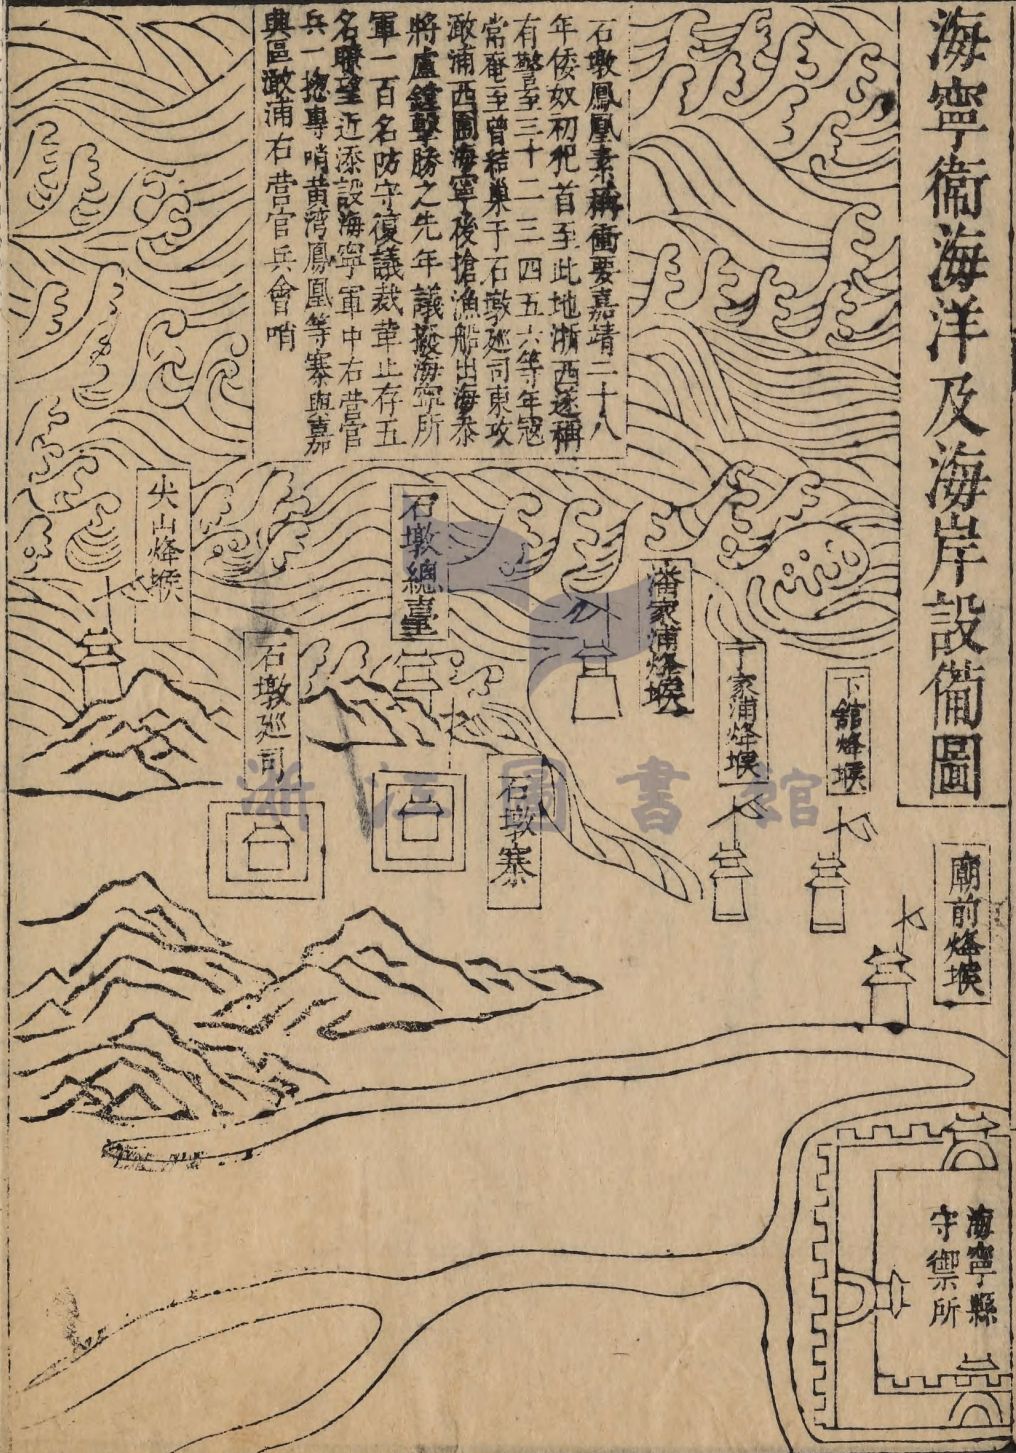 海寧衞海洋及海岸設備圖
石墩鳳凰素稱衝要嘉靖二十八
年倭奴初犯首至此地浙西遂稱
有警至三十二三四五六等年寇
常奄至曾結巢于石墩廵司東攻
澉浦西圍海寧後搶漁船出海叅
將盧鏜擊勝之先年議撥海寧所
軍一百名防守復議裁革止存五
名瞭望近添設海寧軍中右营官
兵一摠專哨黄湾鳳凰等寨與嘉
興區澉浦右营官兵會哨
廟前烽堠
下舘烽堠
家浦烽堠
潘家浦烽堠
石墩寨
石墩總臺
石墩廵司
尖山烽堠
海寧縣
守禦所
浙江圖書館